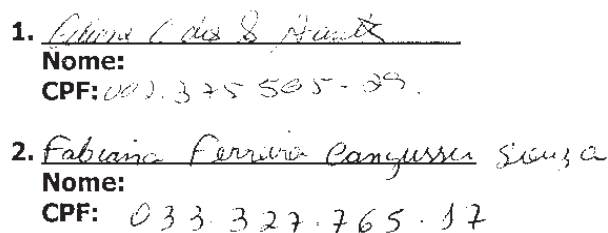 1. C. dos S.
Nome:
CPF: 375 505-29.
2. Fabiana Ferreira Cangussu Souza
Nome:
CPF: 033.327.765.17